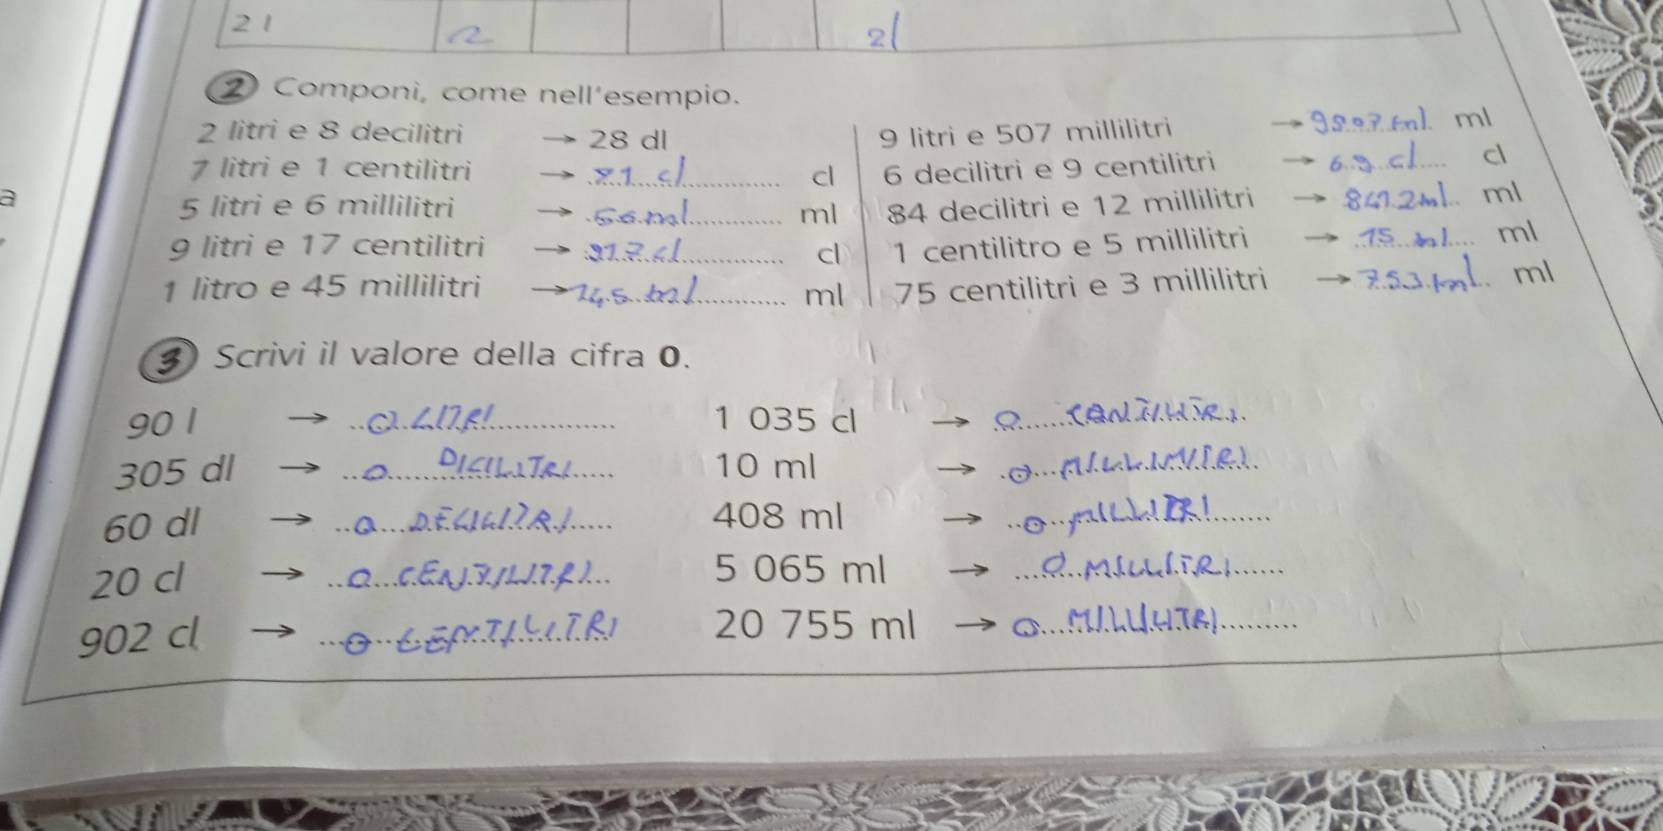 2 l 2 2l
2 Componi, come nell'esempio.
2 litri e 8 decilitri → 28 dl
7 litri e 1 centilitri → 71 cl cl
5 litri e 6 millilitri → 56 ml ml
9 litri e 17 centilitri → 917 cl cl
1 litro e 45 millilitri → 145 ml ml
9 litri e 507 millilitri → ml
6 decilitri e 9 centilitri → 69 cl cl
84 decilitri e 12 millilitri → 8412 ml ml
1 centilitro e 5 millilitri → 15 ml ml
75 centilitri e 3 millilitri → 753 ml ml
a
3 Scrivi il valore della cifra 0.
90 l → 0 LITRI
305 dl → 0 DICILITRI
60 dl → 0 DECILITRI
20 cl → 0 CENTILITRI
902 cl → 0 CENTILITRI
1 035 cl → 0
10 ml → 0
408 ml → 0
5 065 ml → 0 MILLITRI
20 755 ml → 0 MILLILITRI